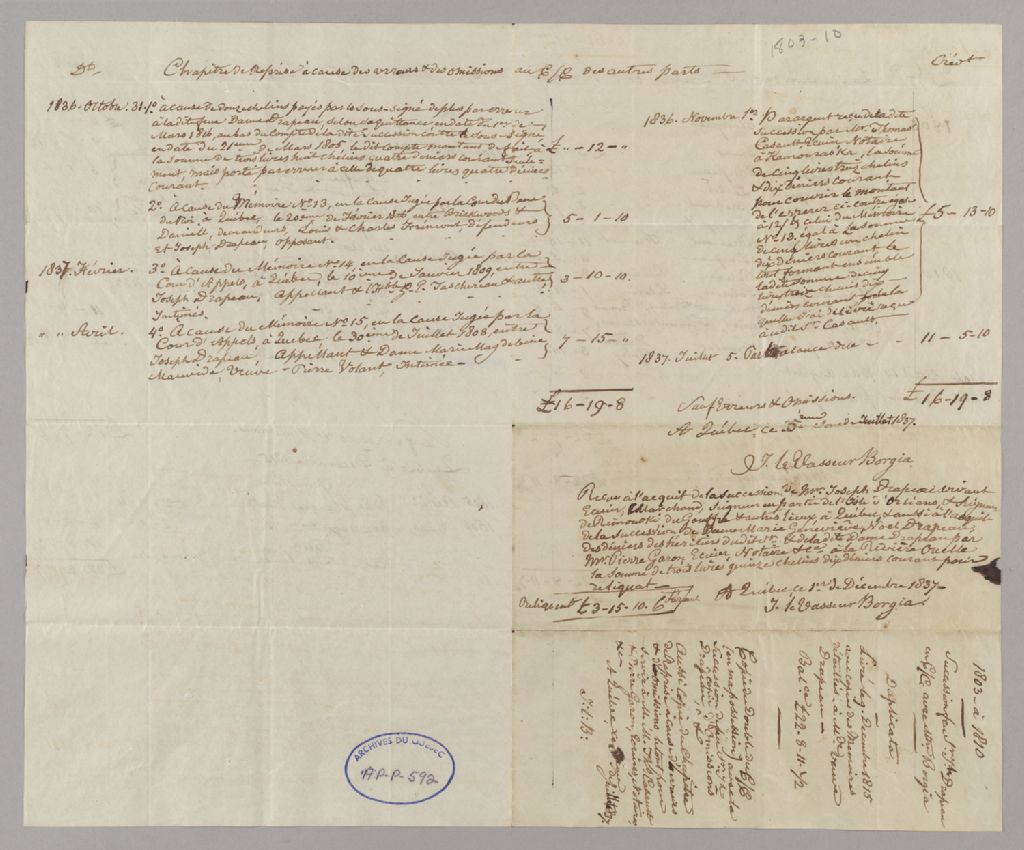 1803-10
Dt. Chapitre de Reprise à cause des erreurs & des omissions au Cpte des autres parts — Crédt
1836. Octobre. 31. 1o à cause de douze chelins payés par le sous-signé de plus par erreur
à ladite feue Dame Drapeau, selon sa quittance en date du 1er de
Mars 1816, au bas du Compte de ladite Succession contre le sous-signé
en date du 21ème de Mars 1805, le dit compte montant de fait à £ „ - 12 - „
la somme de trois livres huit chelins quatre deniers courant seule-
ment, mais porté par erreur à celle de quatre livres quatre deniers
Courant.
2o. À Cause du Mémoire No 13, en la Cause Jugée par la Cour du Banc
du Roi à Québec, le 20ème de Février 1806, entre Brickwoods & 5 - 1 - 10
Daniell, demandeurs, Louis & Charles Fremont, défendeurs
et Joseph Drapeau, opposant.
1837. Février. 3o. À Cause du Mémoire No 14, en la Cause Jugée par la
Cour d'Appels, à Québec, le 16ème de Janvier 1809, entre 3 - 10 - 10.
Joseph Drapeau, Appellant & l'Hble. G. E. Taschereau & autres
Intimés.
„ „ Avril. 4o. A cause du Mémoire No 15, en la Cause Jugée par la
Cour d'Appels à Québec le 30ème de Juillet 1808, entre 7 - 15 - „
Joseph Drapeau, Appellant & Dame Marie Magdeleine
Mauvide, Veuve - Pierre Volant, Intimée -
£16 - 19 - 8
1836. Novembre 1er Par argent reçu de ladite
Succession par Mr. Thomas
Casault Ecuier Notaire
à Kamouraska, la somme
de Cinq livres treize chelins
& dix deniers courant
pour couvrir le montant
de l'erreur ci-contre égal
à 12/ & celui du Mémoire £5 - 13 - 10
No 13. égal à la somme
de cinq livres un chelin
dix deniers courant le
tout formant ensemble
ladite somme de cinq
livres treize chelins dix
deniers courant pour la
quelle j'ai délivré reçu
audit Sr. Casault.
1837. Juillet 5. Par balance due - - 11 - 5 - 10
£16 - 19 - 8
Sauf Erreurs & Omissions.
A Québec, ce 5ème Jour de Juillet 1837.
J. le Vasseur Borgia
Reçu à l'acquit de la succession de Mr. Joseph Drapeau vivant
Ecuier, Marchand, Seigneur en partie de l'Isle d'Orléans, & Seigneur
de Rimouski du Gouffre & autres lieux, à Québec, & aussi à l'acquit
de la succession de Dame Marie Geneviève Noel Drapeau,
des deniers des héritiers dudit Sr. & de ladite Dame Drapeau par
Mr. Pierre Garon, Ecuier, Notaire &ca. à la Rivière Ouelle
la somme de trois livres quinze chelins dix deniers courant pour
reliquat — A Québec ce 1er de Décembre 1837 -
Reliquat £3 - 15 - 10. J. le Vasseur Borgia
1803 - à 1810
Succession feu Sr. Jph. Drapeau
en Cpte avec Mr. Borgia
Duplicata.
Livré le 9. Decembre 1815
avec copies des Memoires
détaillés à Me. Veuve
Drapeau
Balce. £22 - 8 - 11 1/2
Copie du double du Cpte
en ma possession avec la
Succession de feu Sr. Jph
Drapeau,
Aussi Copie du Chapitre
de Reprise à cause d'erreurs
& d'omissions,
à Mr. Ths. Casault
& Pierre Garon, Ecuiers Notaires
A Québec
J. L. B.
ARCHIVES DU QUÉBEC
AP-P-592